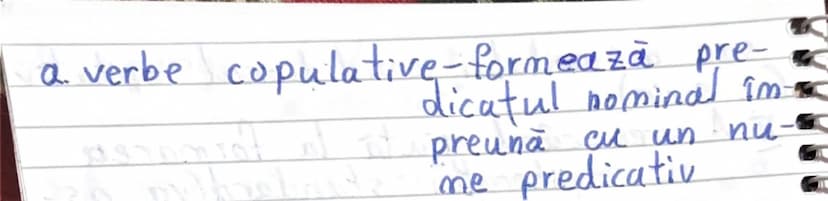 a. verbe copulative-formează pre-
dicatul nominal îm-
preună cu un nu-
me predicativ